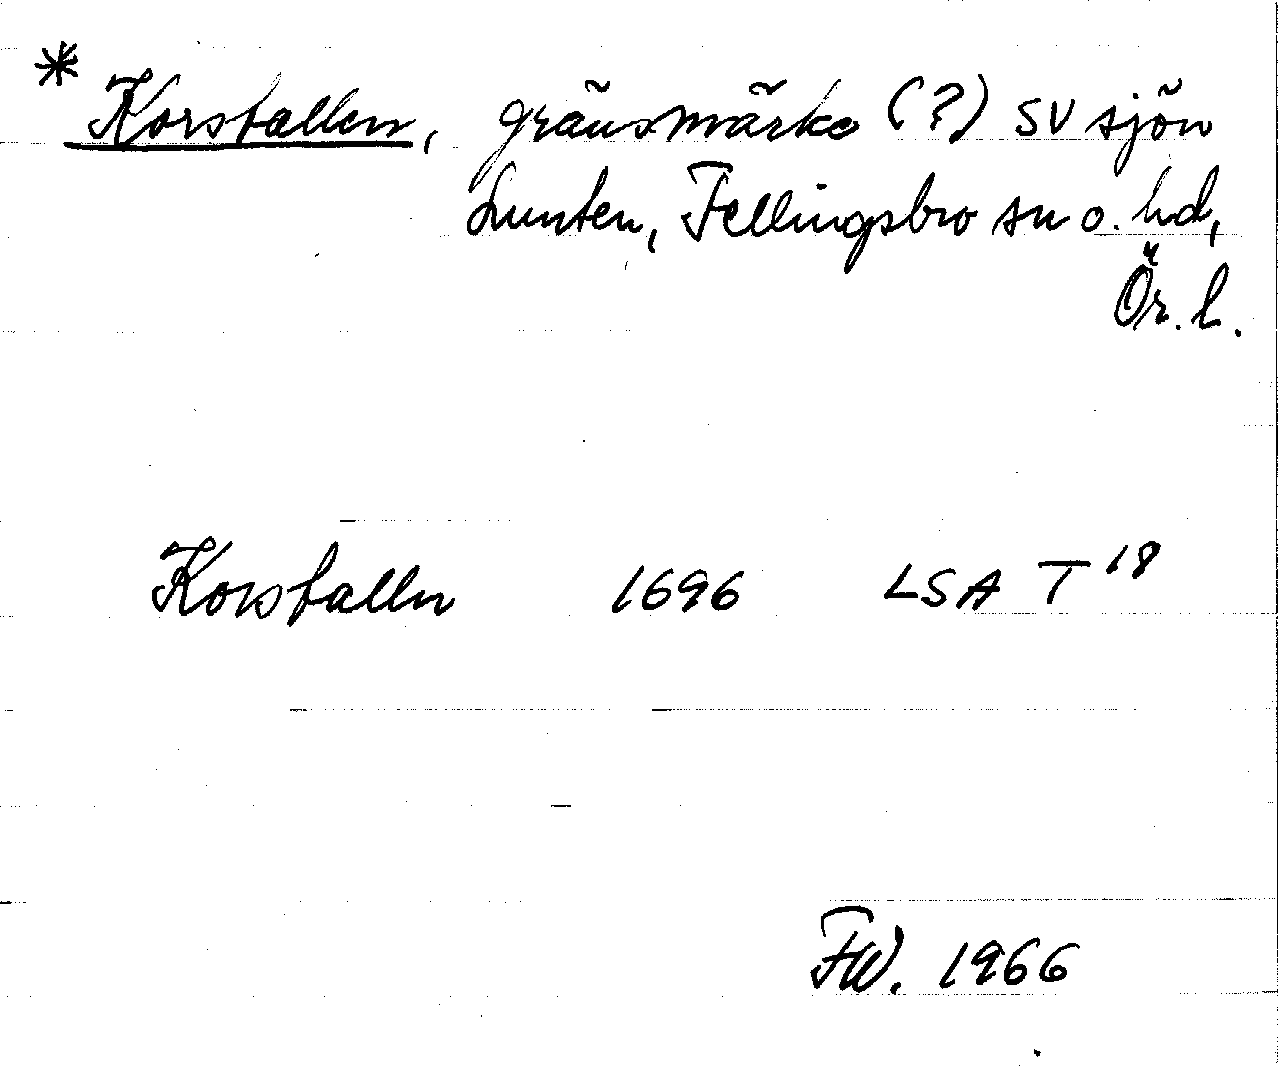 * Korsfallen, gränsmärke (?) SV sjön
Lunten, Fellingsbro sn o. hd,
Ör. l.
Korsfalln 1696 LSA T 18
FW. 1966